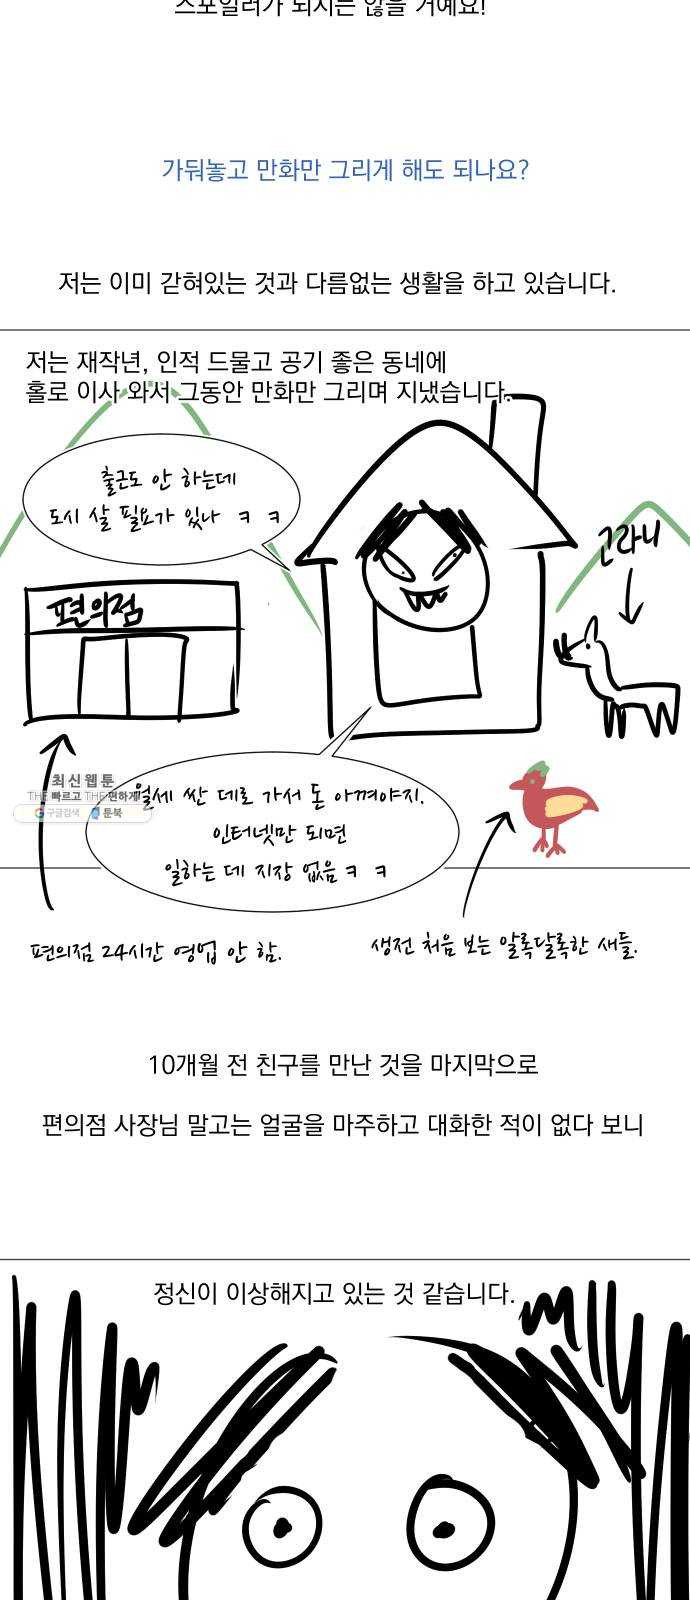 스포일러가 되지는 않을 거예요!
가둬놓고 만화만 그리게 해도 되나요?
저는 이미 갇혀있는 것과 다름없는 생활을 하고 있습니다.
저는 재작년, 인적 드물고 공기 좋은 동네에
홀로 이사 와서 그동안 만화만 그리며 지냈습니다.
출근도 안 하는데
도시 살 필요가 있나 ㅋ ㅋ
고라니
편의점
최신웹툰
THE빠르고 THE편하게
구글검색 툰북
월세 싼 데로 가서 돈 아껴야지.
인터넷만 되면
일하는 데 지장 없음ㅋ ㅋ
편의점 24시간 영업 안 함.
생전 처음 보는 알록달록한 새들.
10개월 전 친구를 만난 것을 마지막으로
편의점 사장님 말고는 얼굴을 마주하고 대화한 적이 없다 보니
정신이 이상해지고 있는 것 같습니다.